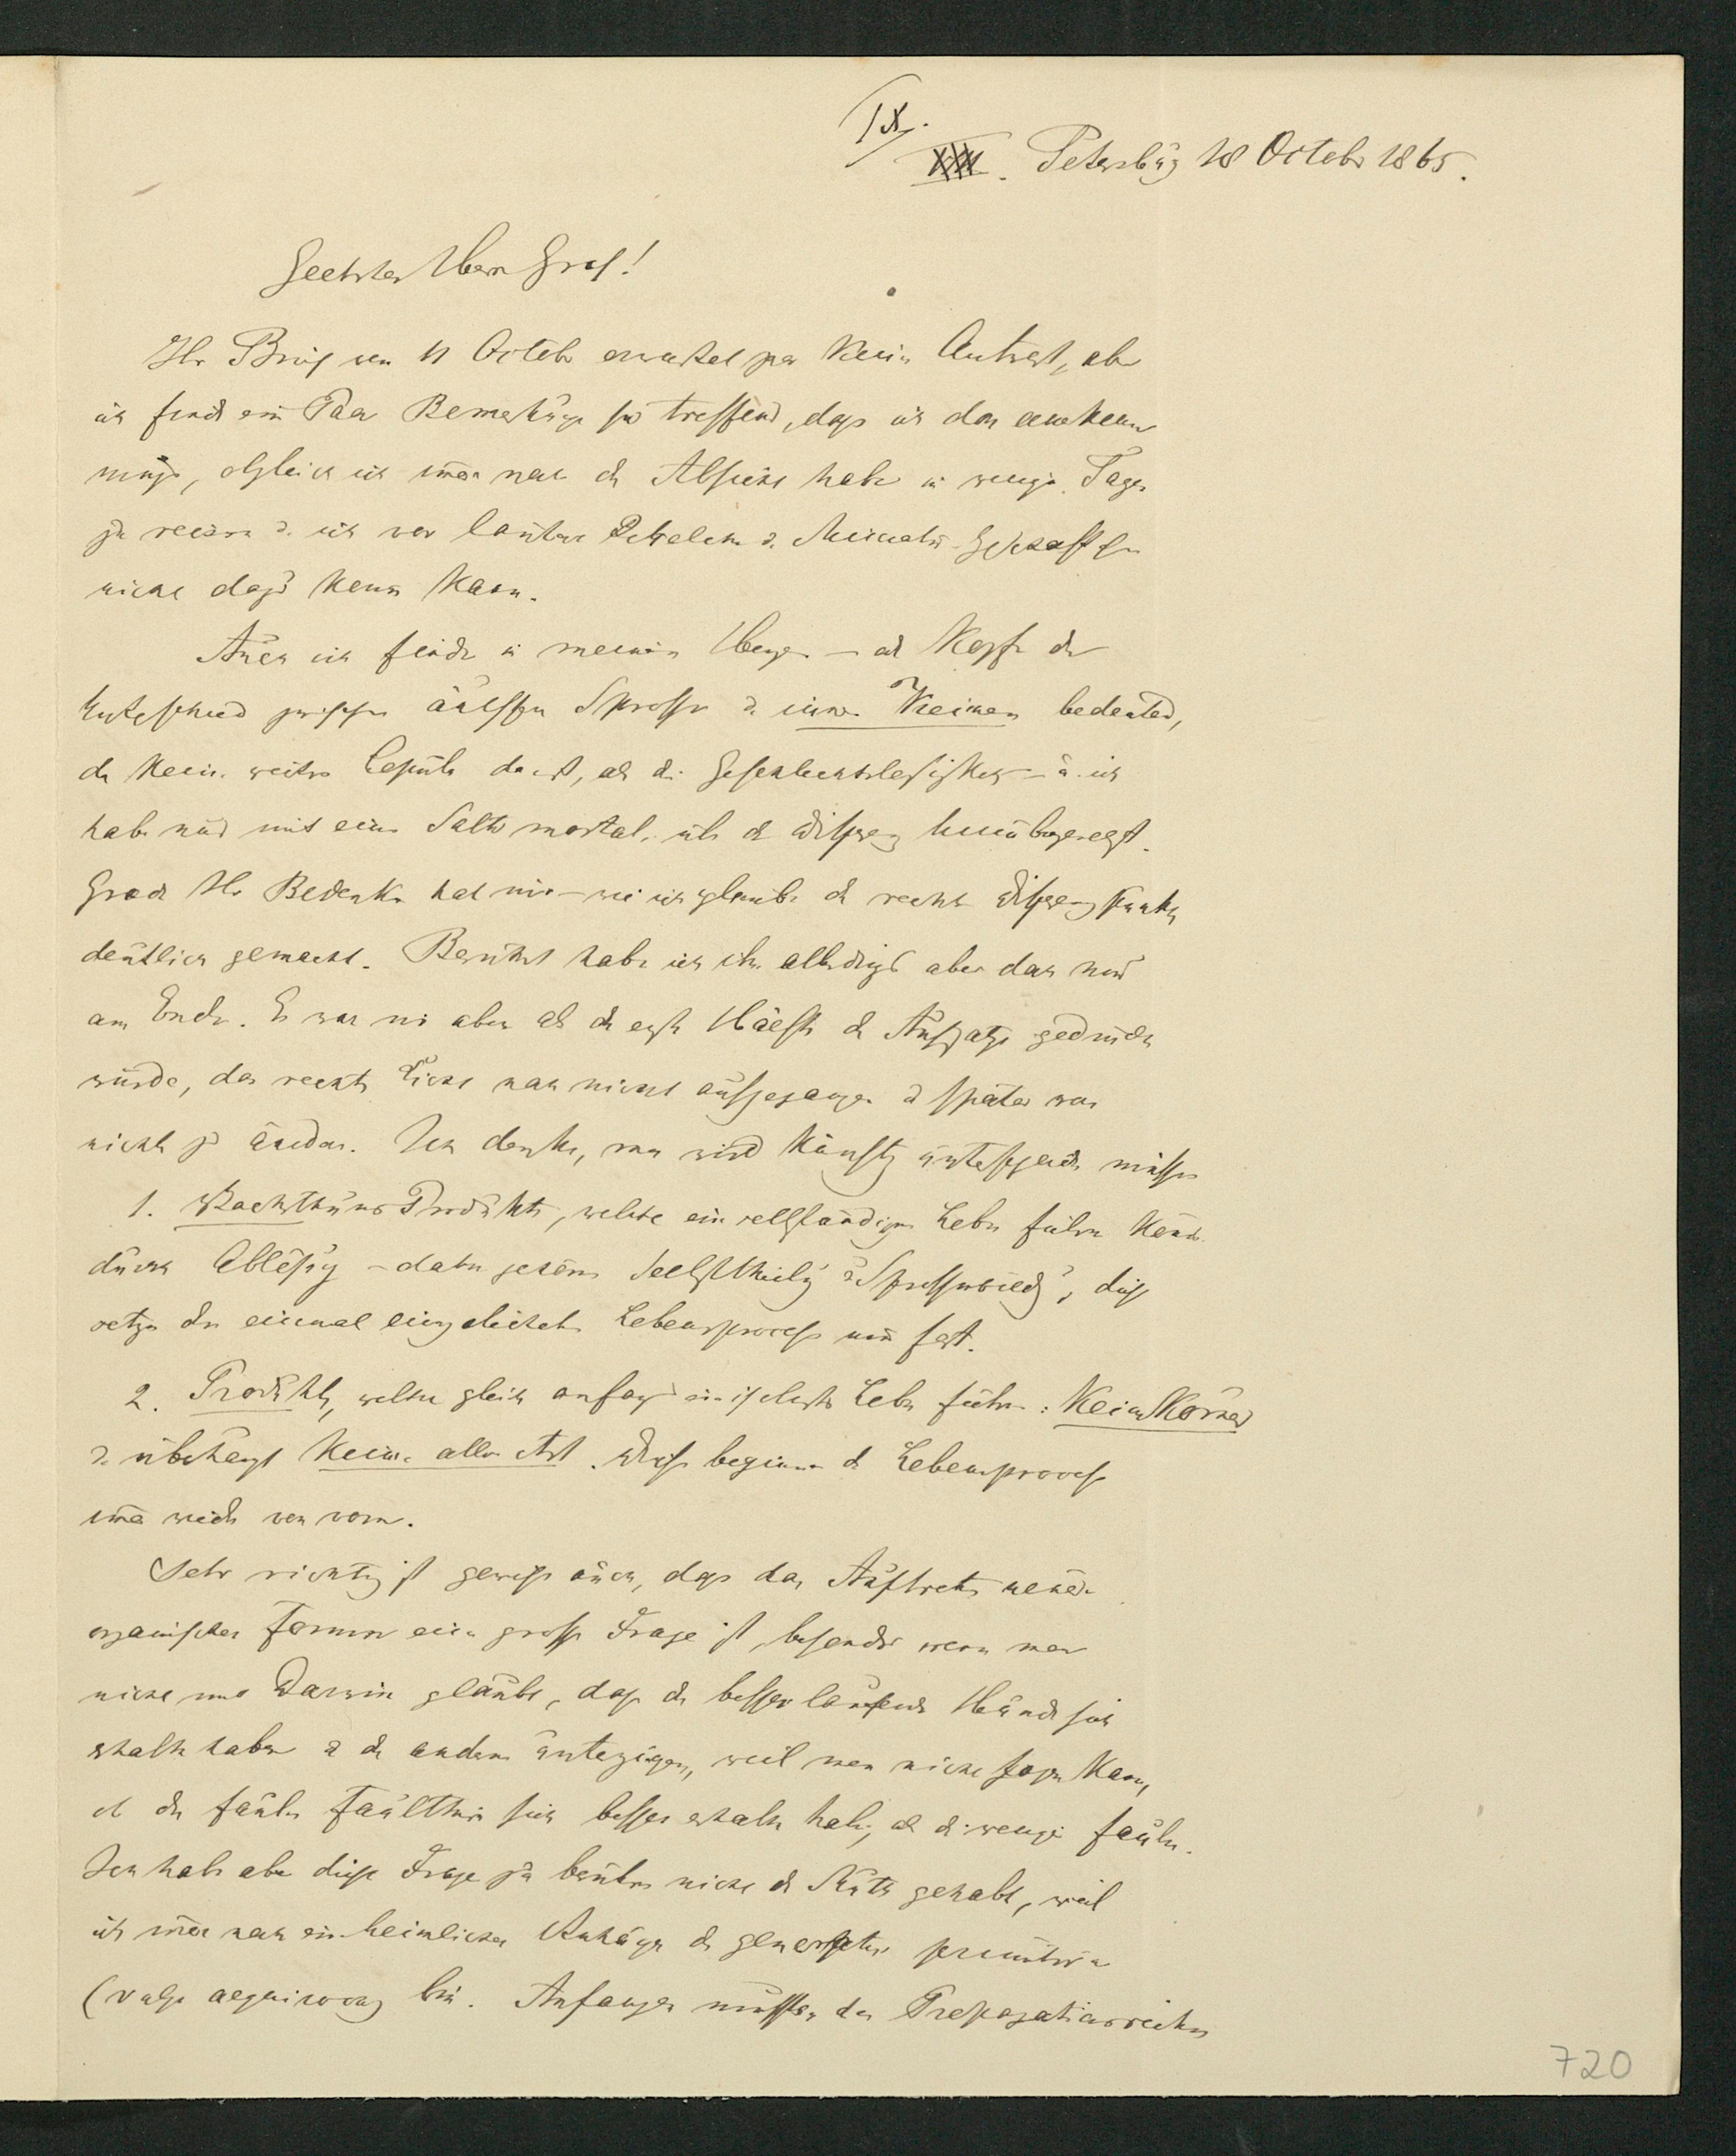 IX.
XXII. Petersburg 18 October 1865.
Geehrter Herr Graf!
Ihr Brief vom 11 October erwartet zwar keine Antwort, aber
ich finde ein Paar Bemerkungen so treffend, dass ich das anerkennen
muss, obgleich ich immer noch die Absicht habe in wenigen Tagen
zu reisen u. ich vor lauter
nicht dazu kommen kann.
Auch ich finde in meinem Herzen – als Kopfe den
Unterschied zwischen äussern Sprossen u. innern Keimen bedeutend,
da keine weitere da ist, als die Geschlechtslosigkeit – u. ich
habe mich mit einem Salto mortale über die hinübergesetzt.
Grade Ihr Bedenken hat mir – wie ich glaube den rechten
deutlich gemacht. Berührt habe ich ihn allerdings aber doch nur
am Ende. Es war mir aber als die erste Hälfte des Aufsatzes gedruckt
wurde, das rechte Licht noch nicht aufgegangen u. später war
nicht zu ändern. Ich denke, man wird künftig unterscheiden müssen
1. Wachsthums Produkte, welche ein selbständiges Leben führen können
durch Ablösung – dahin gehören Selbsttheilung u. Sprossenbildung, diese
setzen den einmal eingeleiteten Lebensprocess nur fort.
2. Produkte, welche gleich anfangs ein isolirtes Leben führen: Keimkörner
u. überhaupt Keime aller Art. Diese beginnen den Lebensprocess
immer wieder von vorn.
Sehr richtig ist gewiss auch, dass das Auftreten neuer
organischer Formen eine grosse Frage ist, besonders wenn man
nicht mit Darwin glaubt, dass die besser laufenden Hunde sich
erhalten haben u. die andern untergingen, weil man nicht sagen kann,
ob die faulen Faulthiere sich besser erhalten haben, als die weniger faulen.
Ich habe aber diese Frage zu berühren nicht den Muth gehabt, weil
ich immer noch ein heimlicher Anhänger der generatio primitiva
(vulgo aequivoca) bin. Anfangen müssen die Propagationsreihen
720